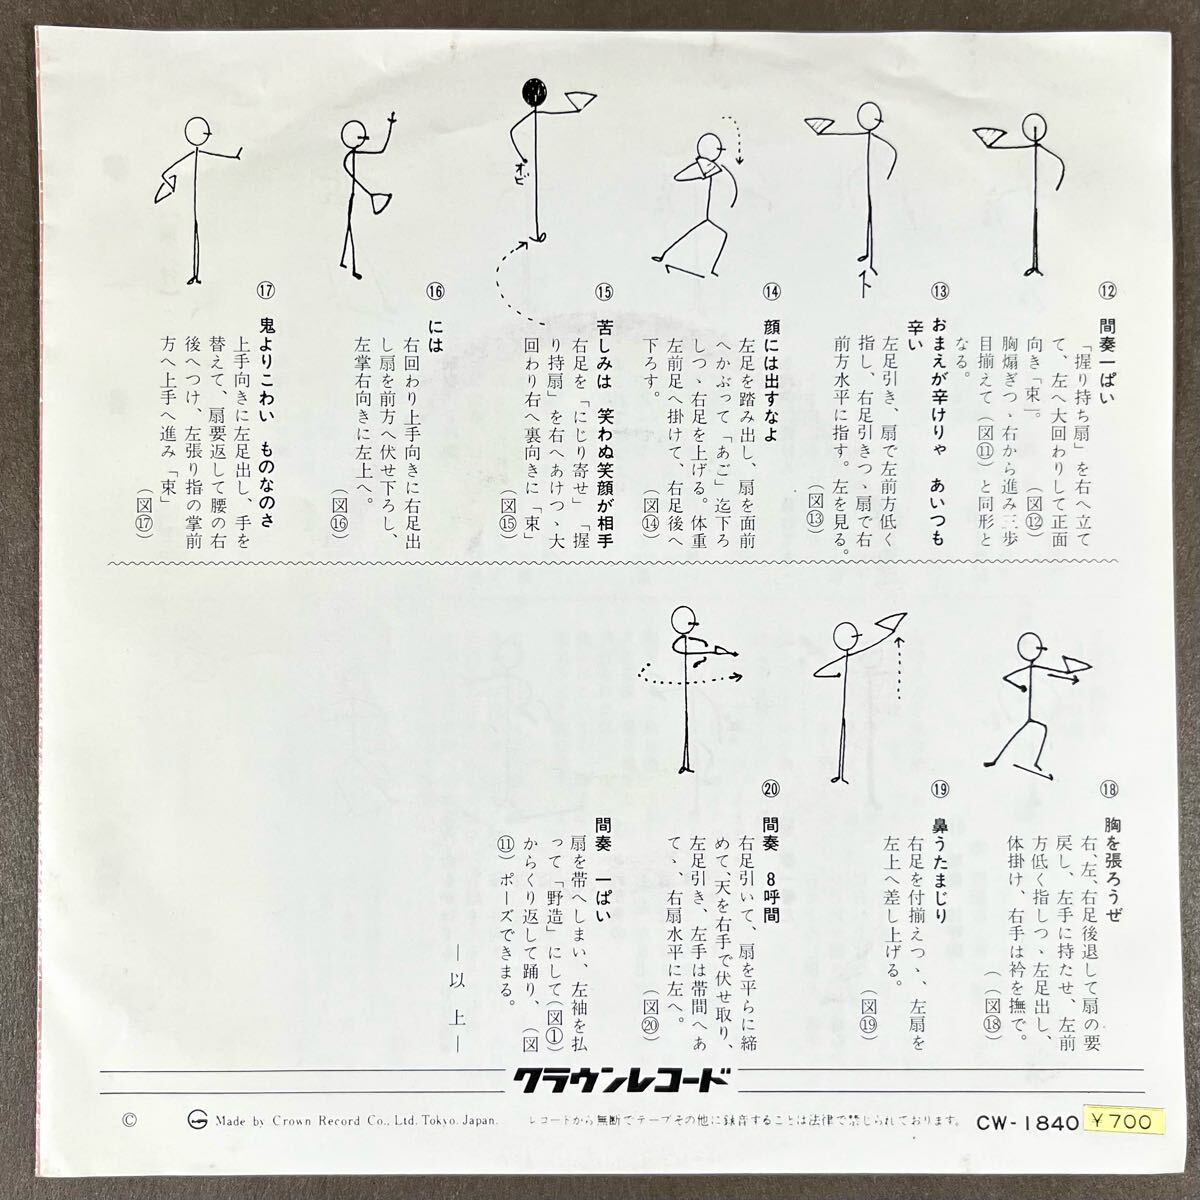 ⑫ 間奏一ぱい
「握り持ち扇」を右へ立て
て、左へ大回わりして正面
向き「束」。 (図⑫)
胸煽ぎつゝ右から進み三歩
目揃えて(図⑪)と同形と
なる。
⑬ おまえが辛けりゃ あいつも
辛い
左足引き、扇で左前方低く
指し、右足引きつゝ扇で右
前方水平に指す。左を見る。
(図⑬)
⑭ 顔には出すなよ
左足を踏み出し、扇を面前
へかぶって「あご」迄下ろ
しつゝ右足を上げる。体重
左前足へ掛けて、右足後へ
下ろす。 (図⑭)
オビ
⑮ 苦しみは 笑わぬ笑顔が相手
右足を「にじり寄せ」「握
り持扇」を右へあけつゝ大
回わり右へ裏向きに「束」
(図⑮)
⑯ には
右回わり上手向きに右足出
し扇を前方へ伏せ下ろし、
左掌右向きに左上へ。
(図⑯)
⑰ 鬼よりこわい ものなのさ
上手向きに左足出し、手を
替えて、扇要返して腰の右
後へつけ、左張り指の掌前
方へ上手へ進み「束」
(図⑰)
⑱ 胸を張ろうぜ
右、左、右足後退して扇の要
戻し、左手に持たせ、左前
方低く指しつゝ左足出し、
体掛け、右手は衿を撫で。
(図⑱)
⑲ 鼻うたまじり
右足を付揃えつゝ、左扇を
左上へ差し上げる。
(図⑲)
⑳ 間奏 8呼間
右足引いて、扇を平らに締
めて、天を右手で伏せ取り、
左足引き、左手は帯間へあ
て、右扇水平に左へ。
(図⑳)
間奏 一ぱい
扇を帯へしまい、左袖を払
って「野造」にして(図①)
からくり返して踊り、(図
⑪)ポーズできまる。
―以 上―
クラウンレコード
© Made by Crown Record Co., Ltd. Tokyo. Japan. レコードから無断でテープその他に録音することは法律で禁じられております。 CW-1840 ¥700